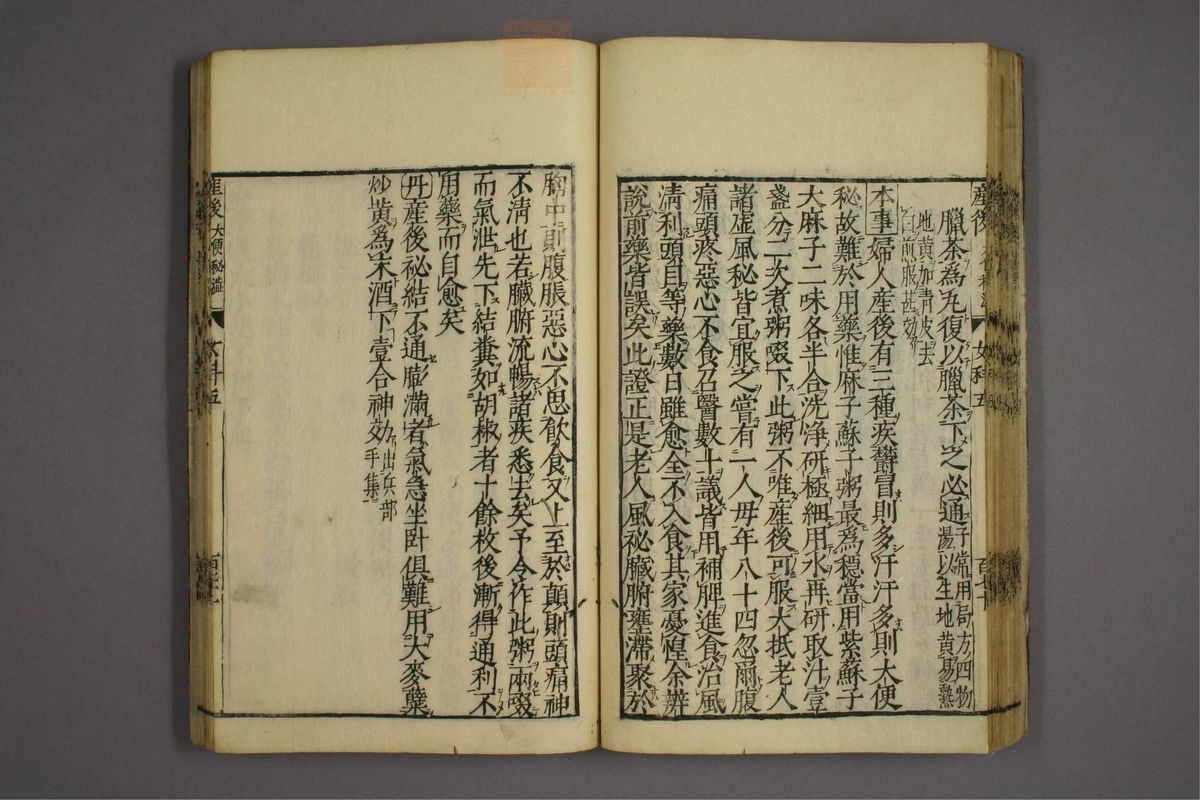 產後 女科五 百七十
臘茶爲丸復以臘茶下之必通予常用局方四物湯以生地黃易熟
地黃加青皮去白煎服甚効
本事婦人產後有三種疾欝冒則多汗汗多則大便
秘故難於用藥惟麻子蘇子粥最爲穩當用紫蘇子
大麻子二味各半合洗淨研極細用水再研取汁壹
盞分二次煮粥啜下此粥不唯產後可服大抵老人
諸虛風秘皆宜服之嘗有一人母年八十四忽爾腹
痛頭疼惡心不食召醫數十議皆用補脾進食治風
淸利頭目等藥數日雖愈全不入食其家憂惶余辨
說前藥皆誤矣此證正是老人風祕臟腑壅滯聚於
胸中則腹脹惡心不思飲食又上至於顚則頭痛神
不淸也若臟腑流暢諸疾悉去矣予令作此粥兩啜
而氣泄先下結糞如胡椒者十餘枚後漸得通利不
用藥而自愈矣
丹產後祕結不通膨滿者氣急坐卧俱難用大麥櫱
炒黃爲末酒下壹合神効出兵部手集
產後 大便秘澁 女科五